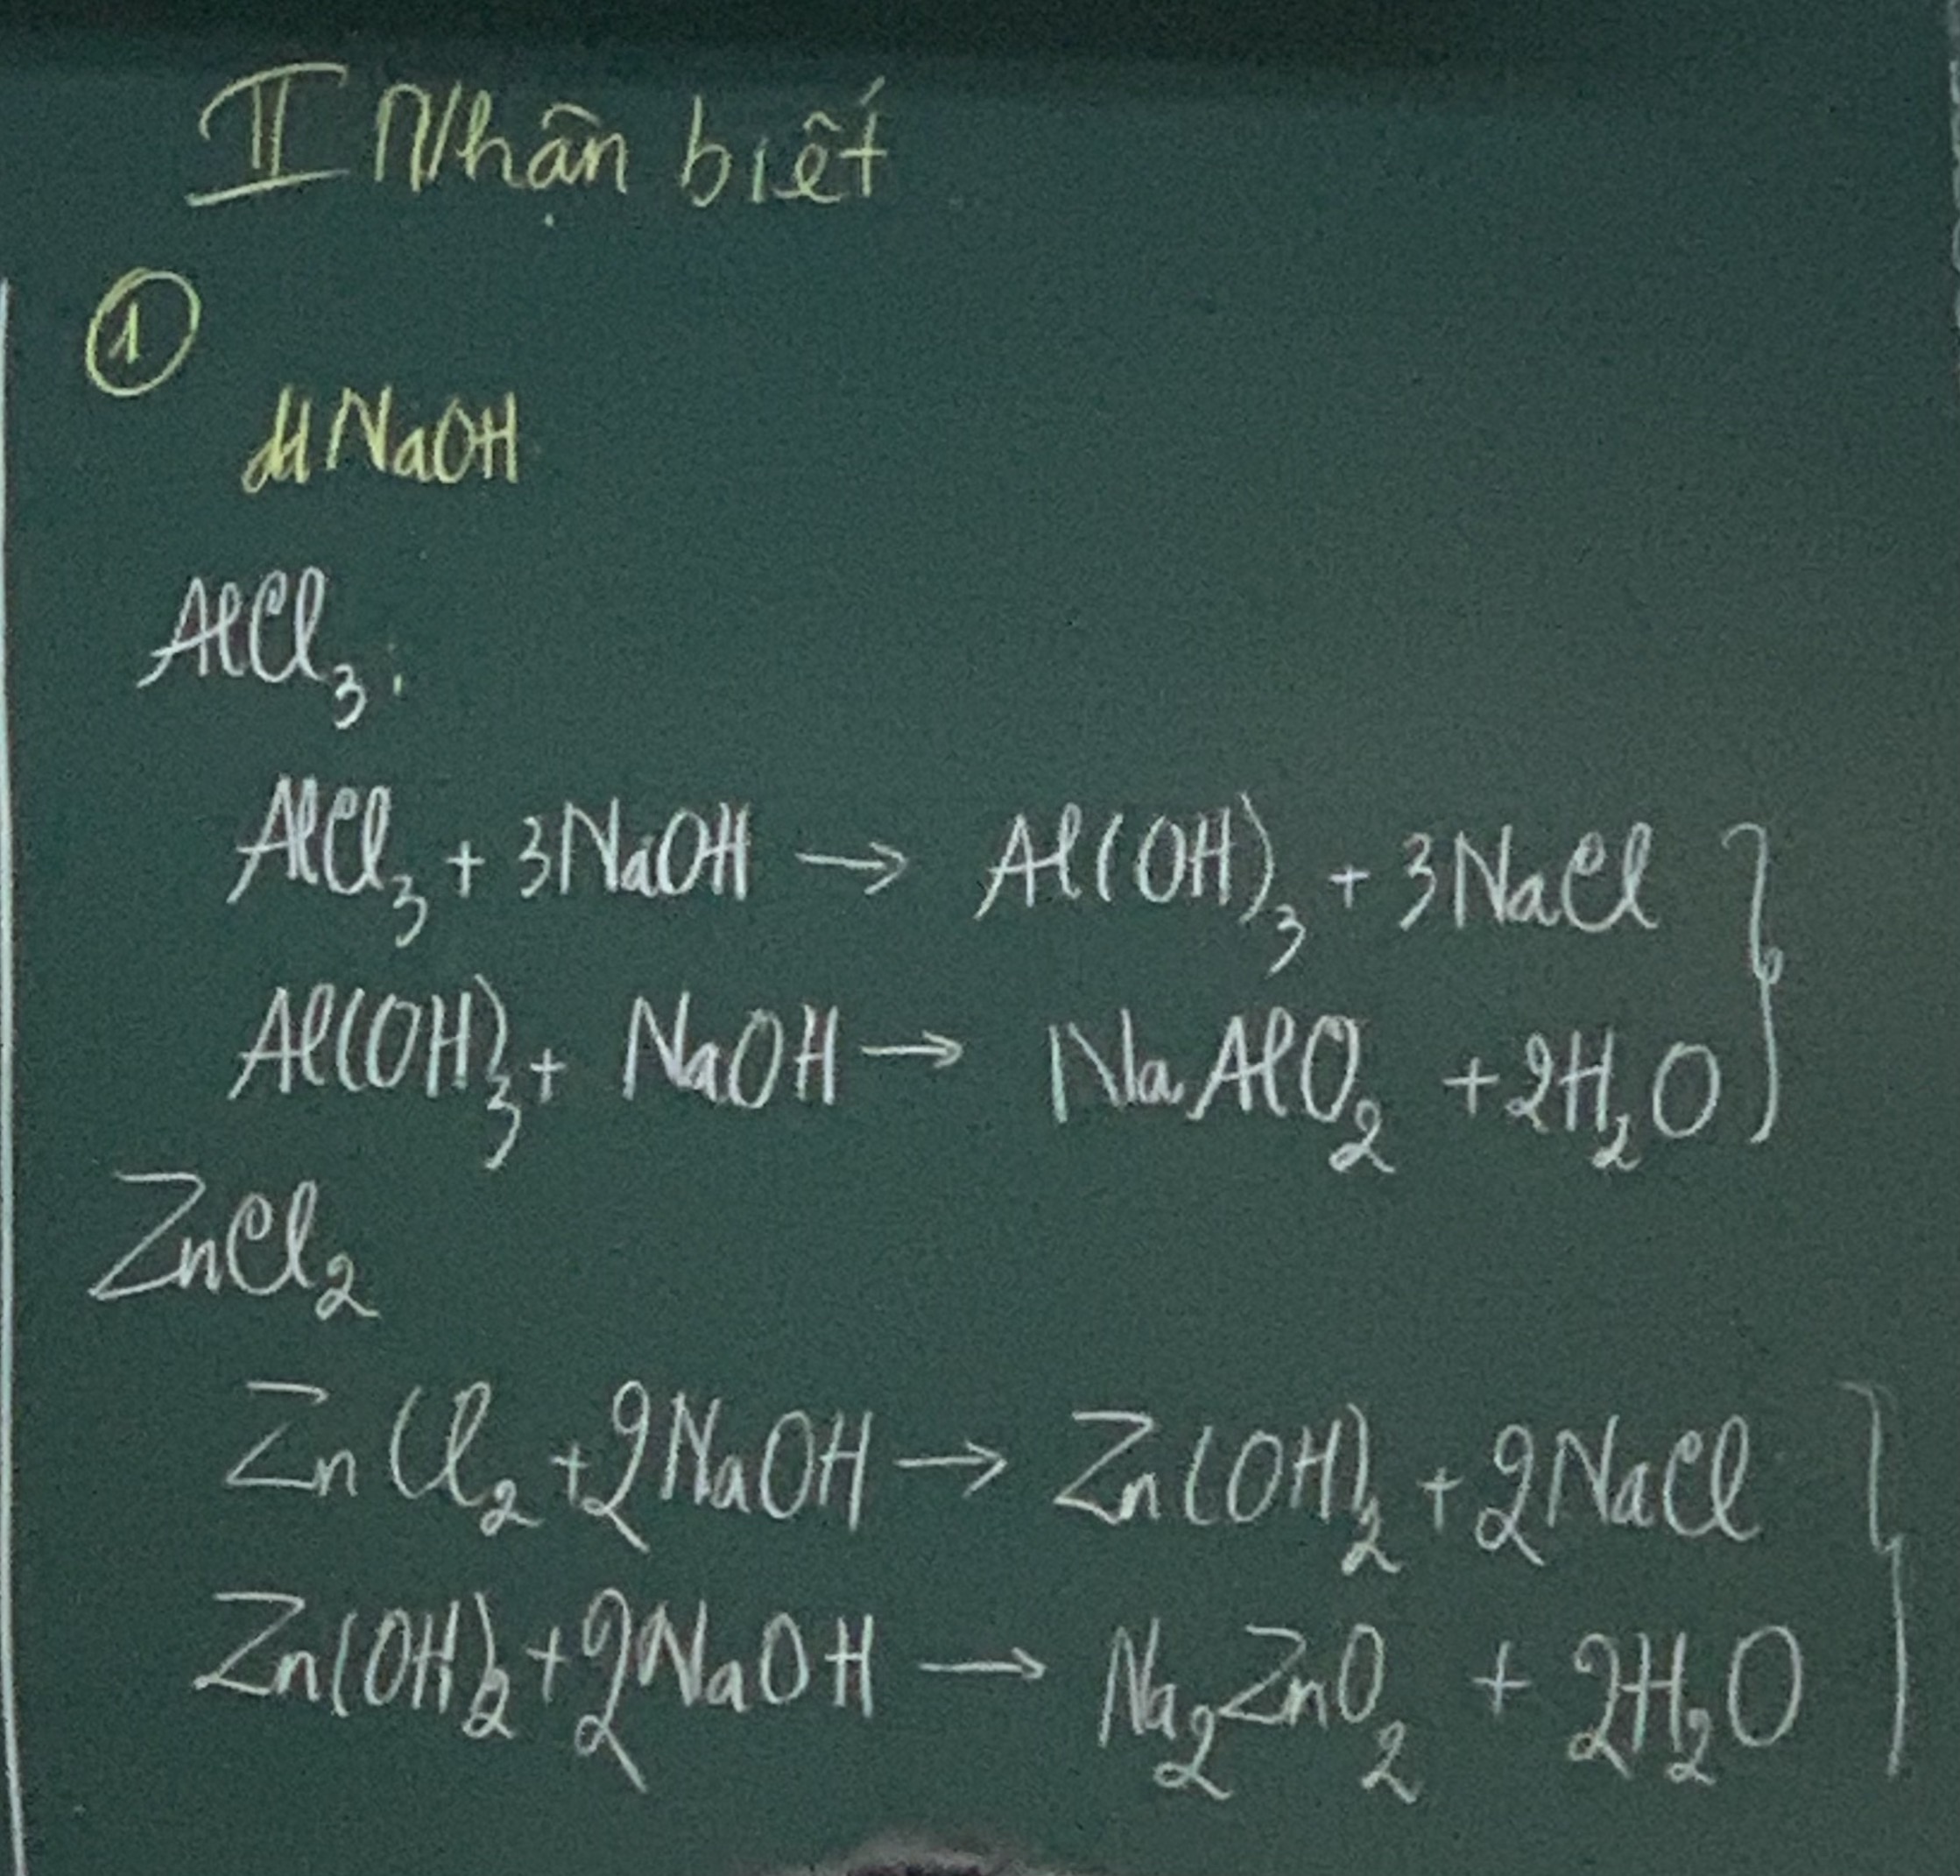 II Nhận biết
①
dd NaOH
AlCl₃:
AlCl₃ + 3NaOH → Al(OH)₃ + 3NaCl
Al(OH)₃ + NaOH → NaAlO₂ + 2H₂O
ZnCl₂
ZnCl₂ + 2NaOH → Zn(OH)₂ + 2NaCl
Zn(OH)₂ + 2NaOH → Na₂ZnO₂ + 2H₂O